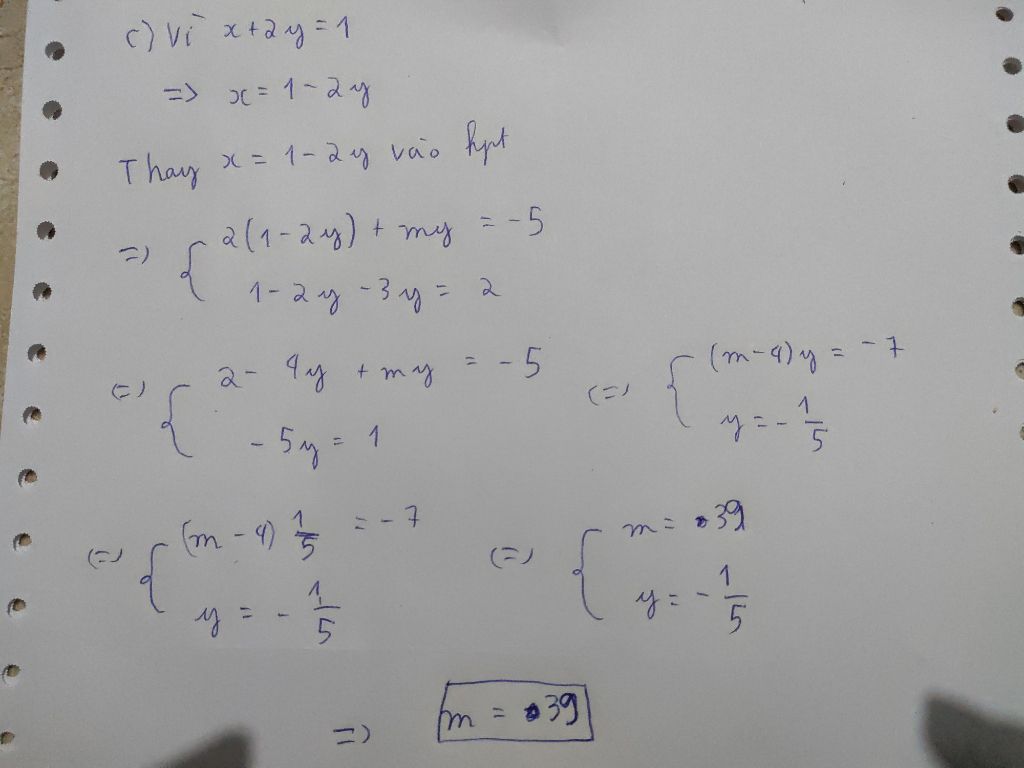 c) Vì x + 2y = 1
=> x = 1 - 2y
Thay x = 1 - 2y vào hpt
=> { 2(1 - 2y) + my = -5
1 - 2y - 3y = 2
(=) { 2 - 4y + my = -5
-5y = 1
(=) { (m - 4)y = -7
y = -1/5
(=) { (m - 4) 1/5 = -7
y = -1/5
(=) { m = 39
y = -1/5
=> m = 39